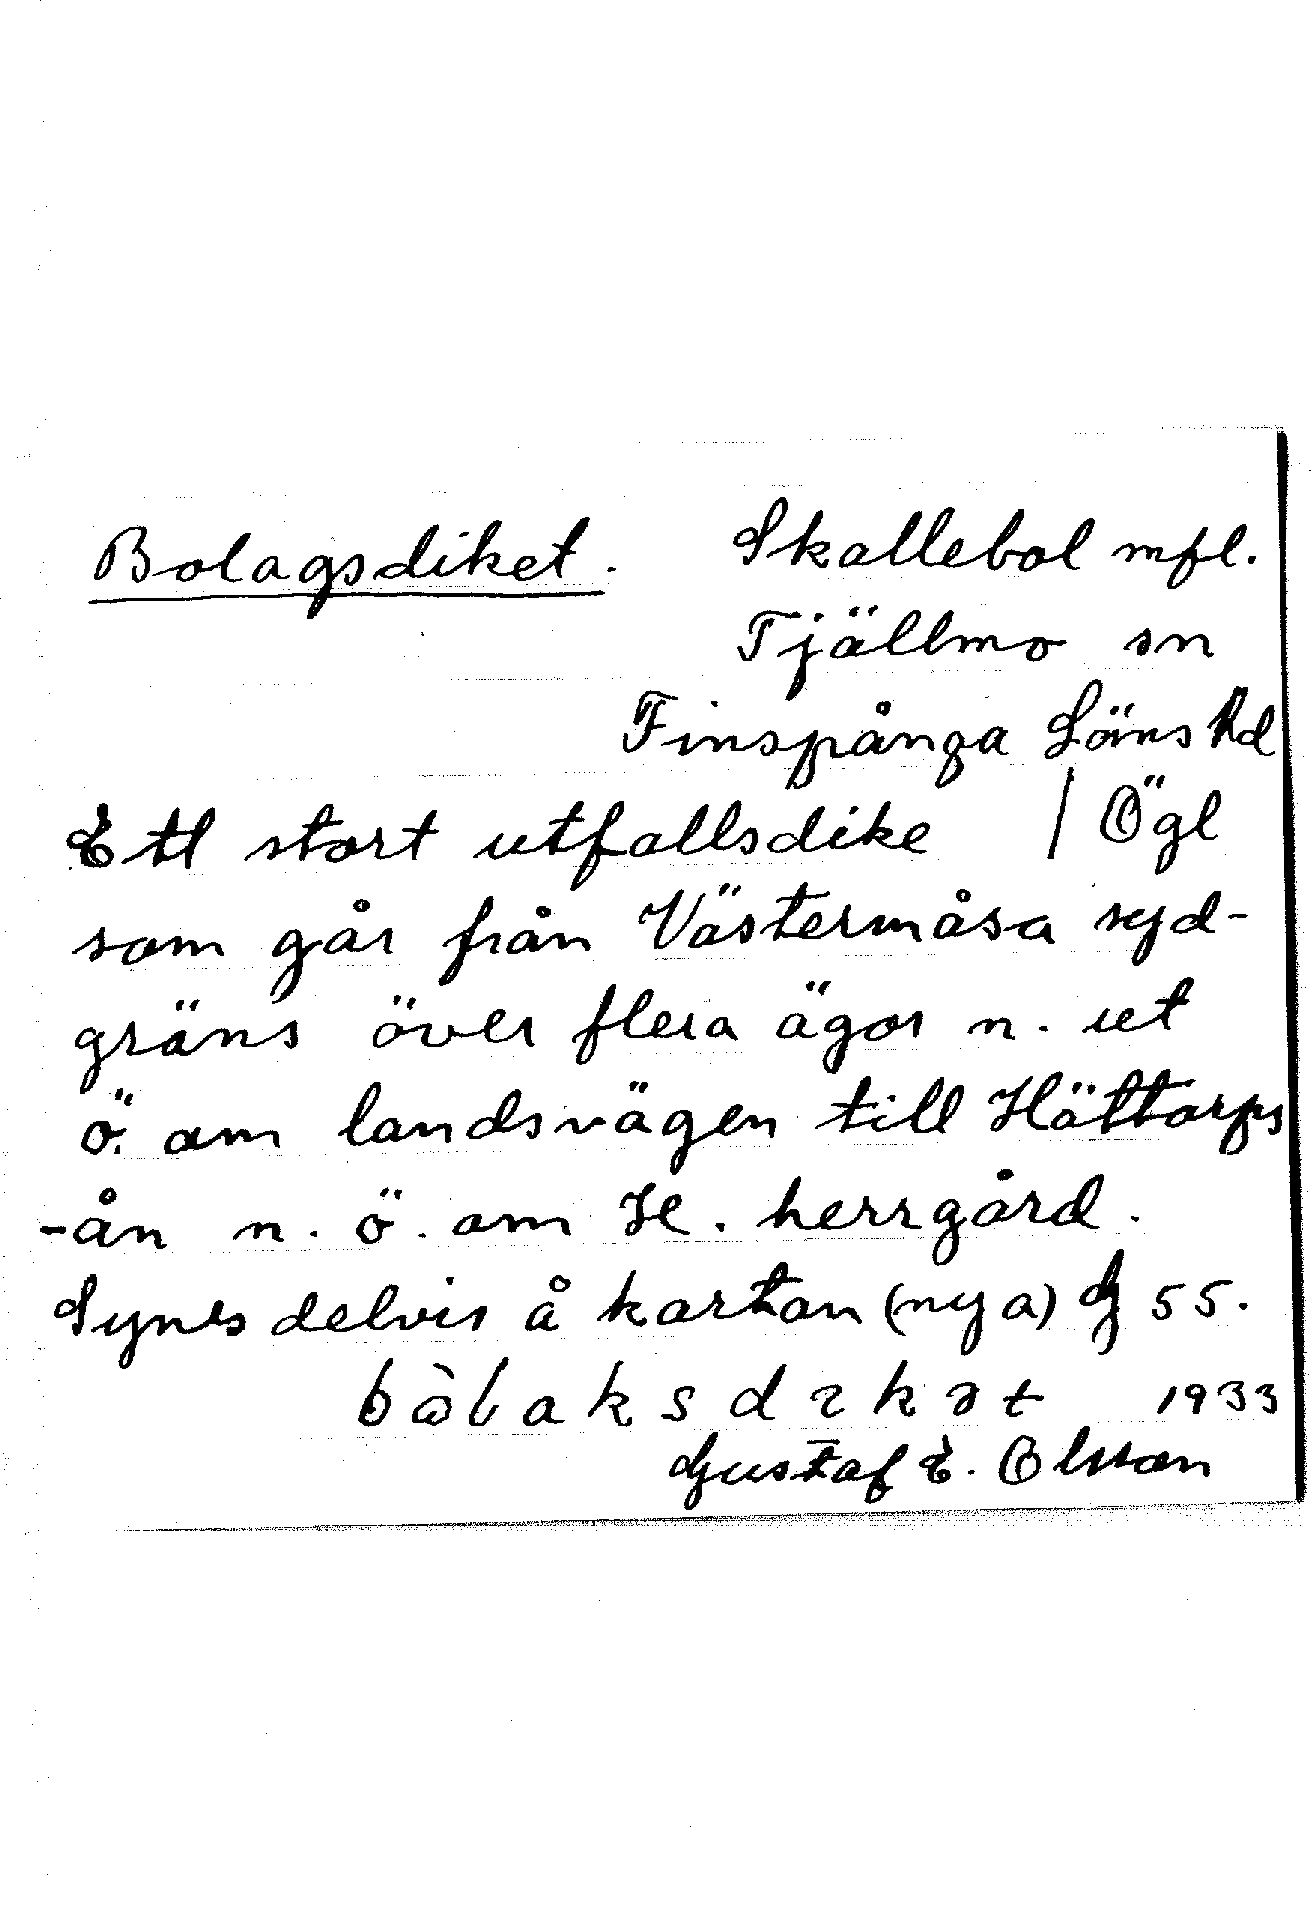 Bolagsdiket. Skallebol mfl.
Tjällmo sn
Finspånga Läns hd
Ett stort utfallsdike / Ögl
som går från Västermåsa syd-
gräns över flera ägor n. ut
ö. om landsvägen till Hättorps
-ån n. ö. om H. herrgård.
Synes delvis å kartan (nya) G 55.
1933
Gustaf E. Olsson